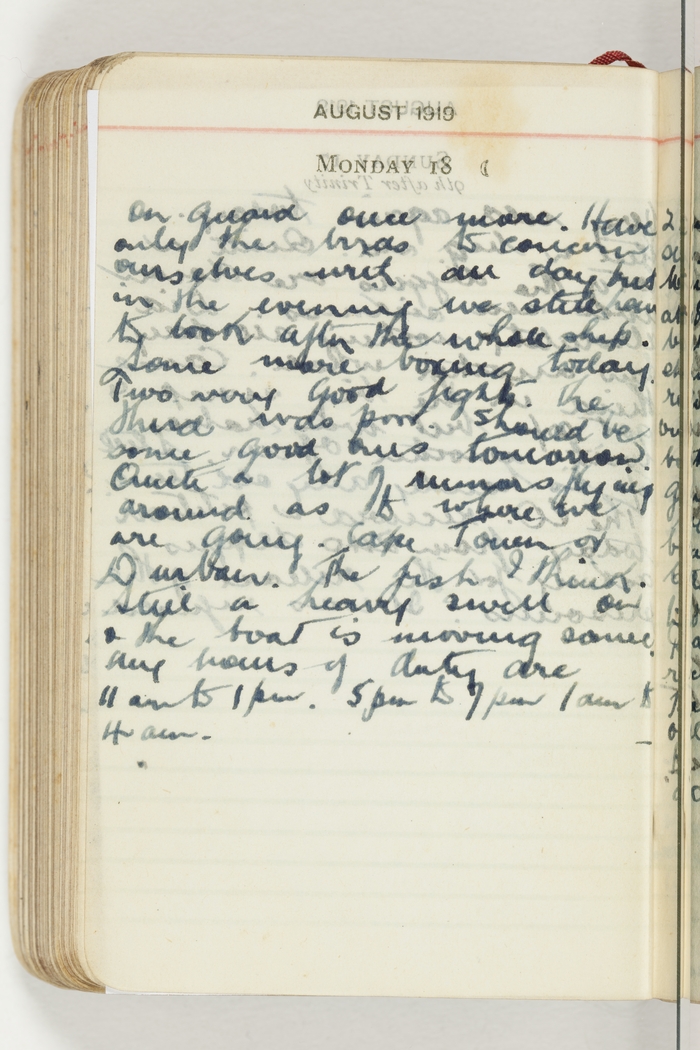 AUGUST 1919
MONDAY 18
On guard once more. Have
only the birds to concern
ourselves with all day but
in the evening we still
to look after the whole ship.
Some more boxing today.
Two very good fights. The
third was poor. Should be
some good ones tomorrow.
Quite a lot of rumors flying
around as to where we
are going. Cape Town or
Durban. The first I think.
Still a heavy swell on
& the boat is moving some.
My hours of duty are
11 am to 1 pm. 5 pm to 7 pm 1 am to
4 am.